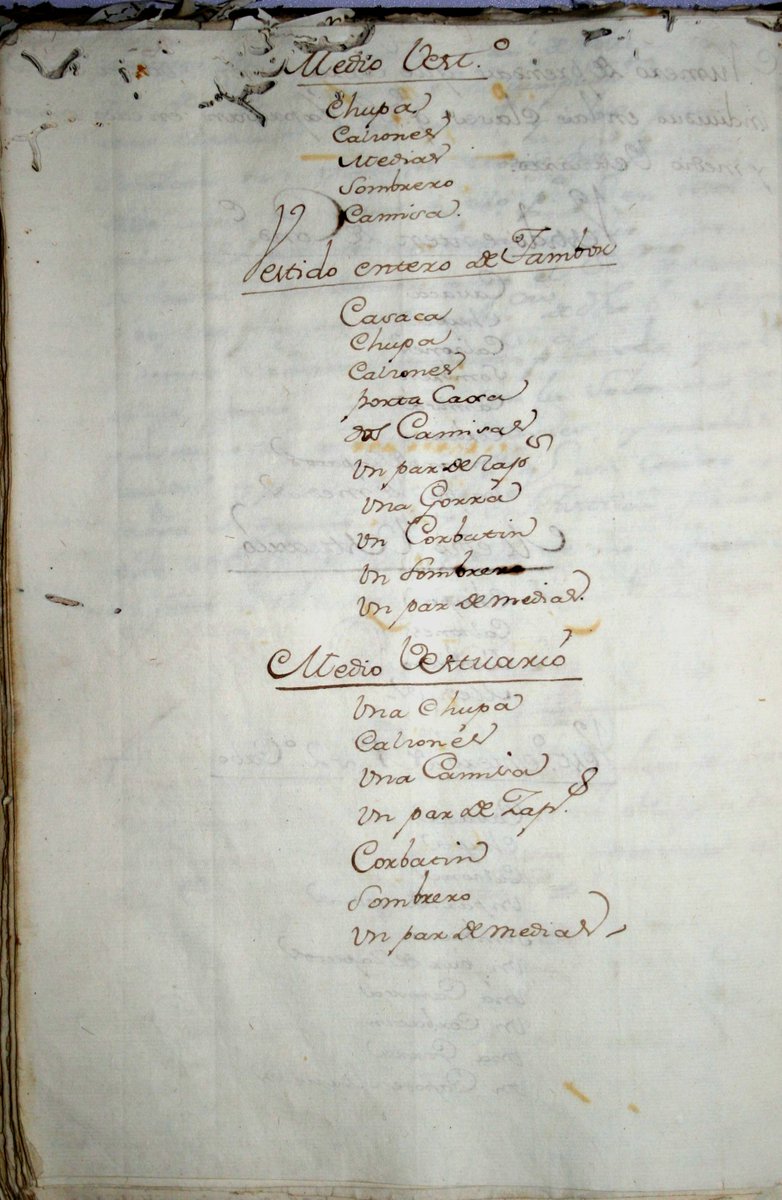 Medio Vest.º
Chupa
Calzones
Medias
Sombrero
Camisa.
Vestido entero de Tambor
Casaca
Chupa
Calzones
porta Caxa
dos Camisas
Un par de Zap.s
Una Gorra
Un Corbatin
Un Sombrero
Un par de medias.
Medio Vestuario
Una Chupa
Calzones
Una Camisa
Un par de Zap.s
Corbatin
Sombrero
Un par de medias